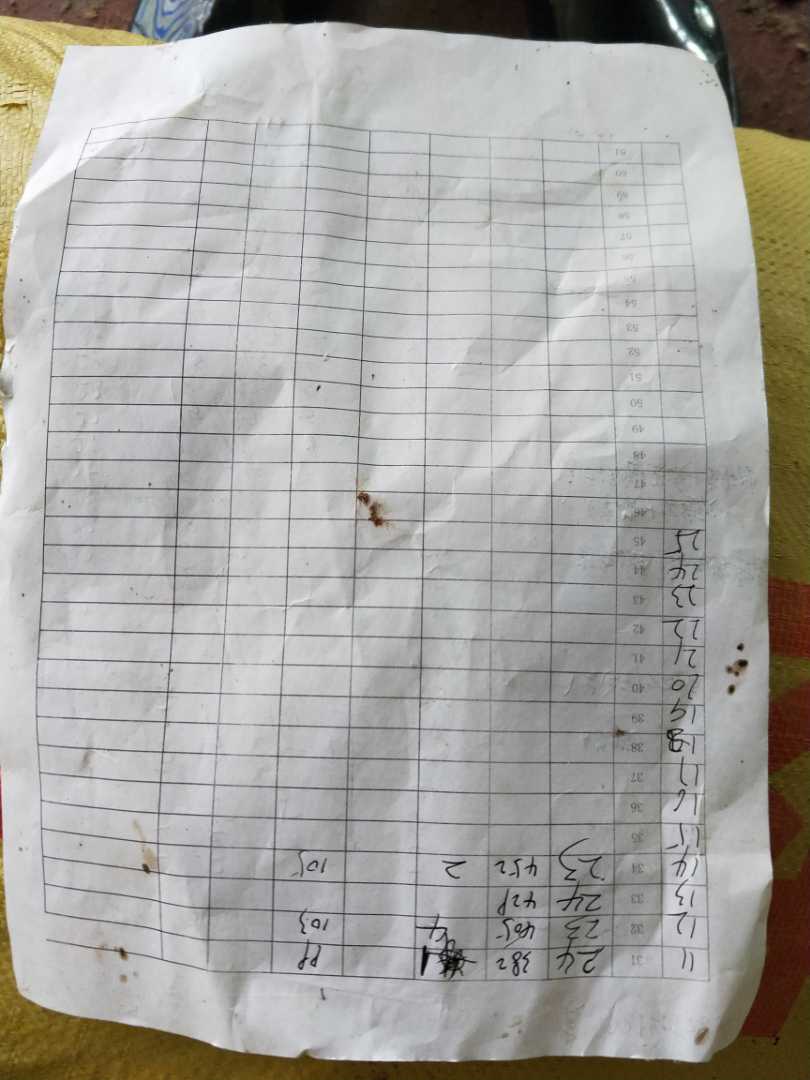 11 31 24 382 1 99
12 32 23 465 4 103
13 33 24 429
14 34 23 452 2 105
15 35
16 36
17 37
18 38
19 39
20 40
21 41
22 42
23 43
24 44
25 45
46
47
48
49
50
51
52
53
54
55
56
57
58
59
60
61